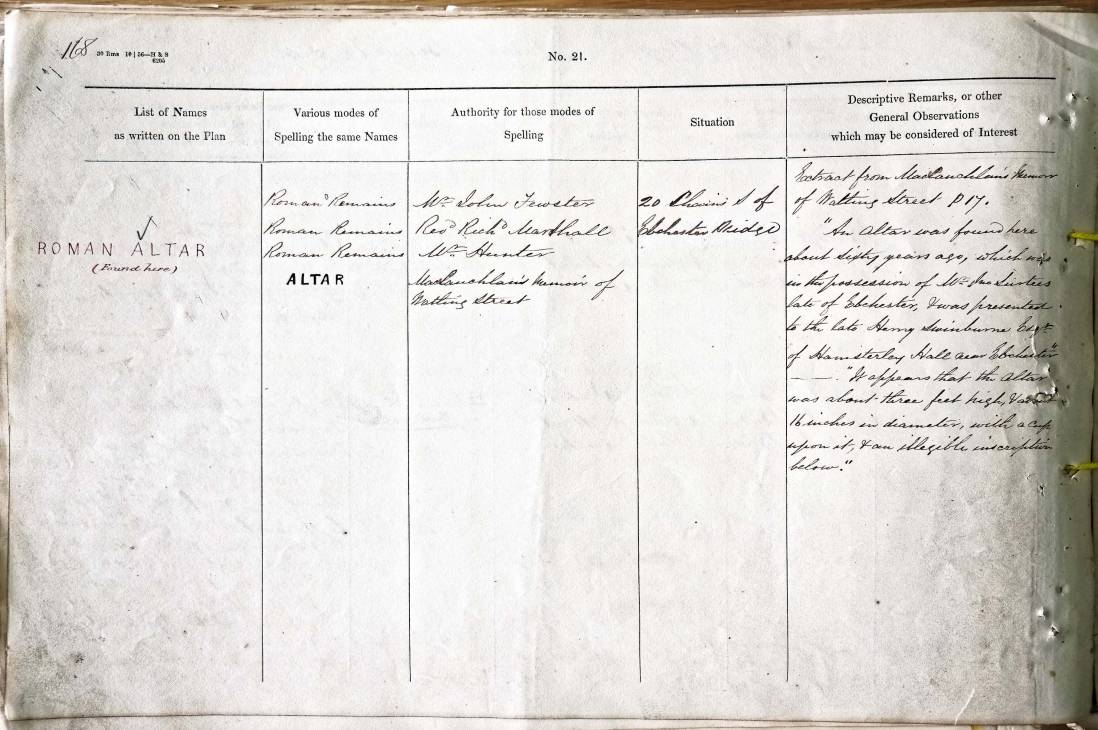 168
20 Rms 10 | 56—H & S
6205
No. 21.
List of Names
as written on the Plan
Various modes of
Spelling the same Names
Authority for those modes of
Spelling
Situation
Descriptive Remarks, or other
General Observations
which may be considered of Interest
ROMAN ALTAR
(Found here)
Roman Remains
Roman Remains
Roman Remains
ALTAR
Mr. John Fewster
Revd. Richd. Marshall
Mr. Hunter
MacLauchlan's Memoir of
Watling Street
20 Chains S of
Ebchester Bridge
Extract from MacLauchlan's Memoir
of Watling Street P 17.
"An Altar was found here
about sixty years ago, which was
in the possession of Mr. Surtees
late of Ebchester, & was presented
to the late Henry Swinburne Esqr.
of Hamsterley Hall near Ebchester"
——. "It appears that the Altar
was about three feet high, &
16 inches in diameter, with a cup
upon it, & an illegible inscription
below."